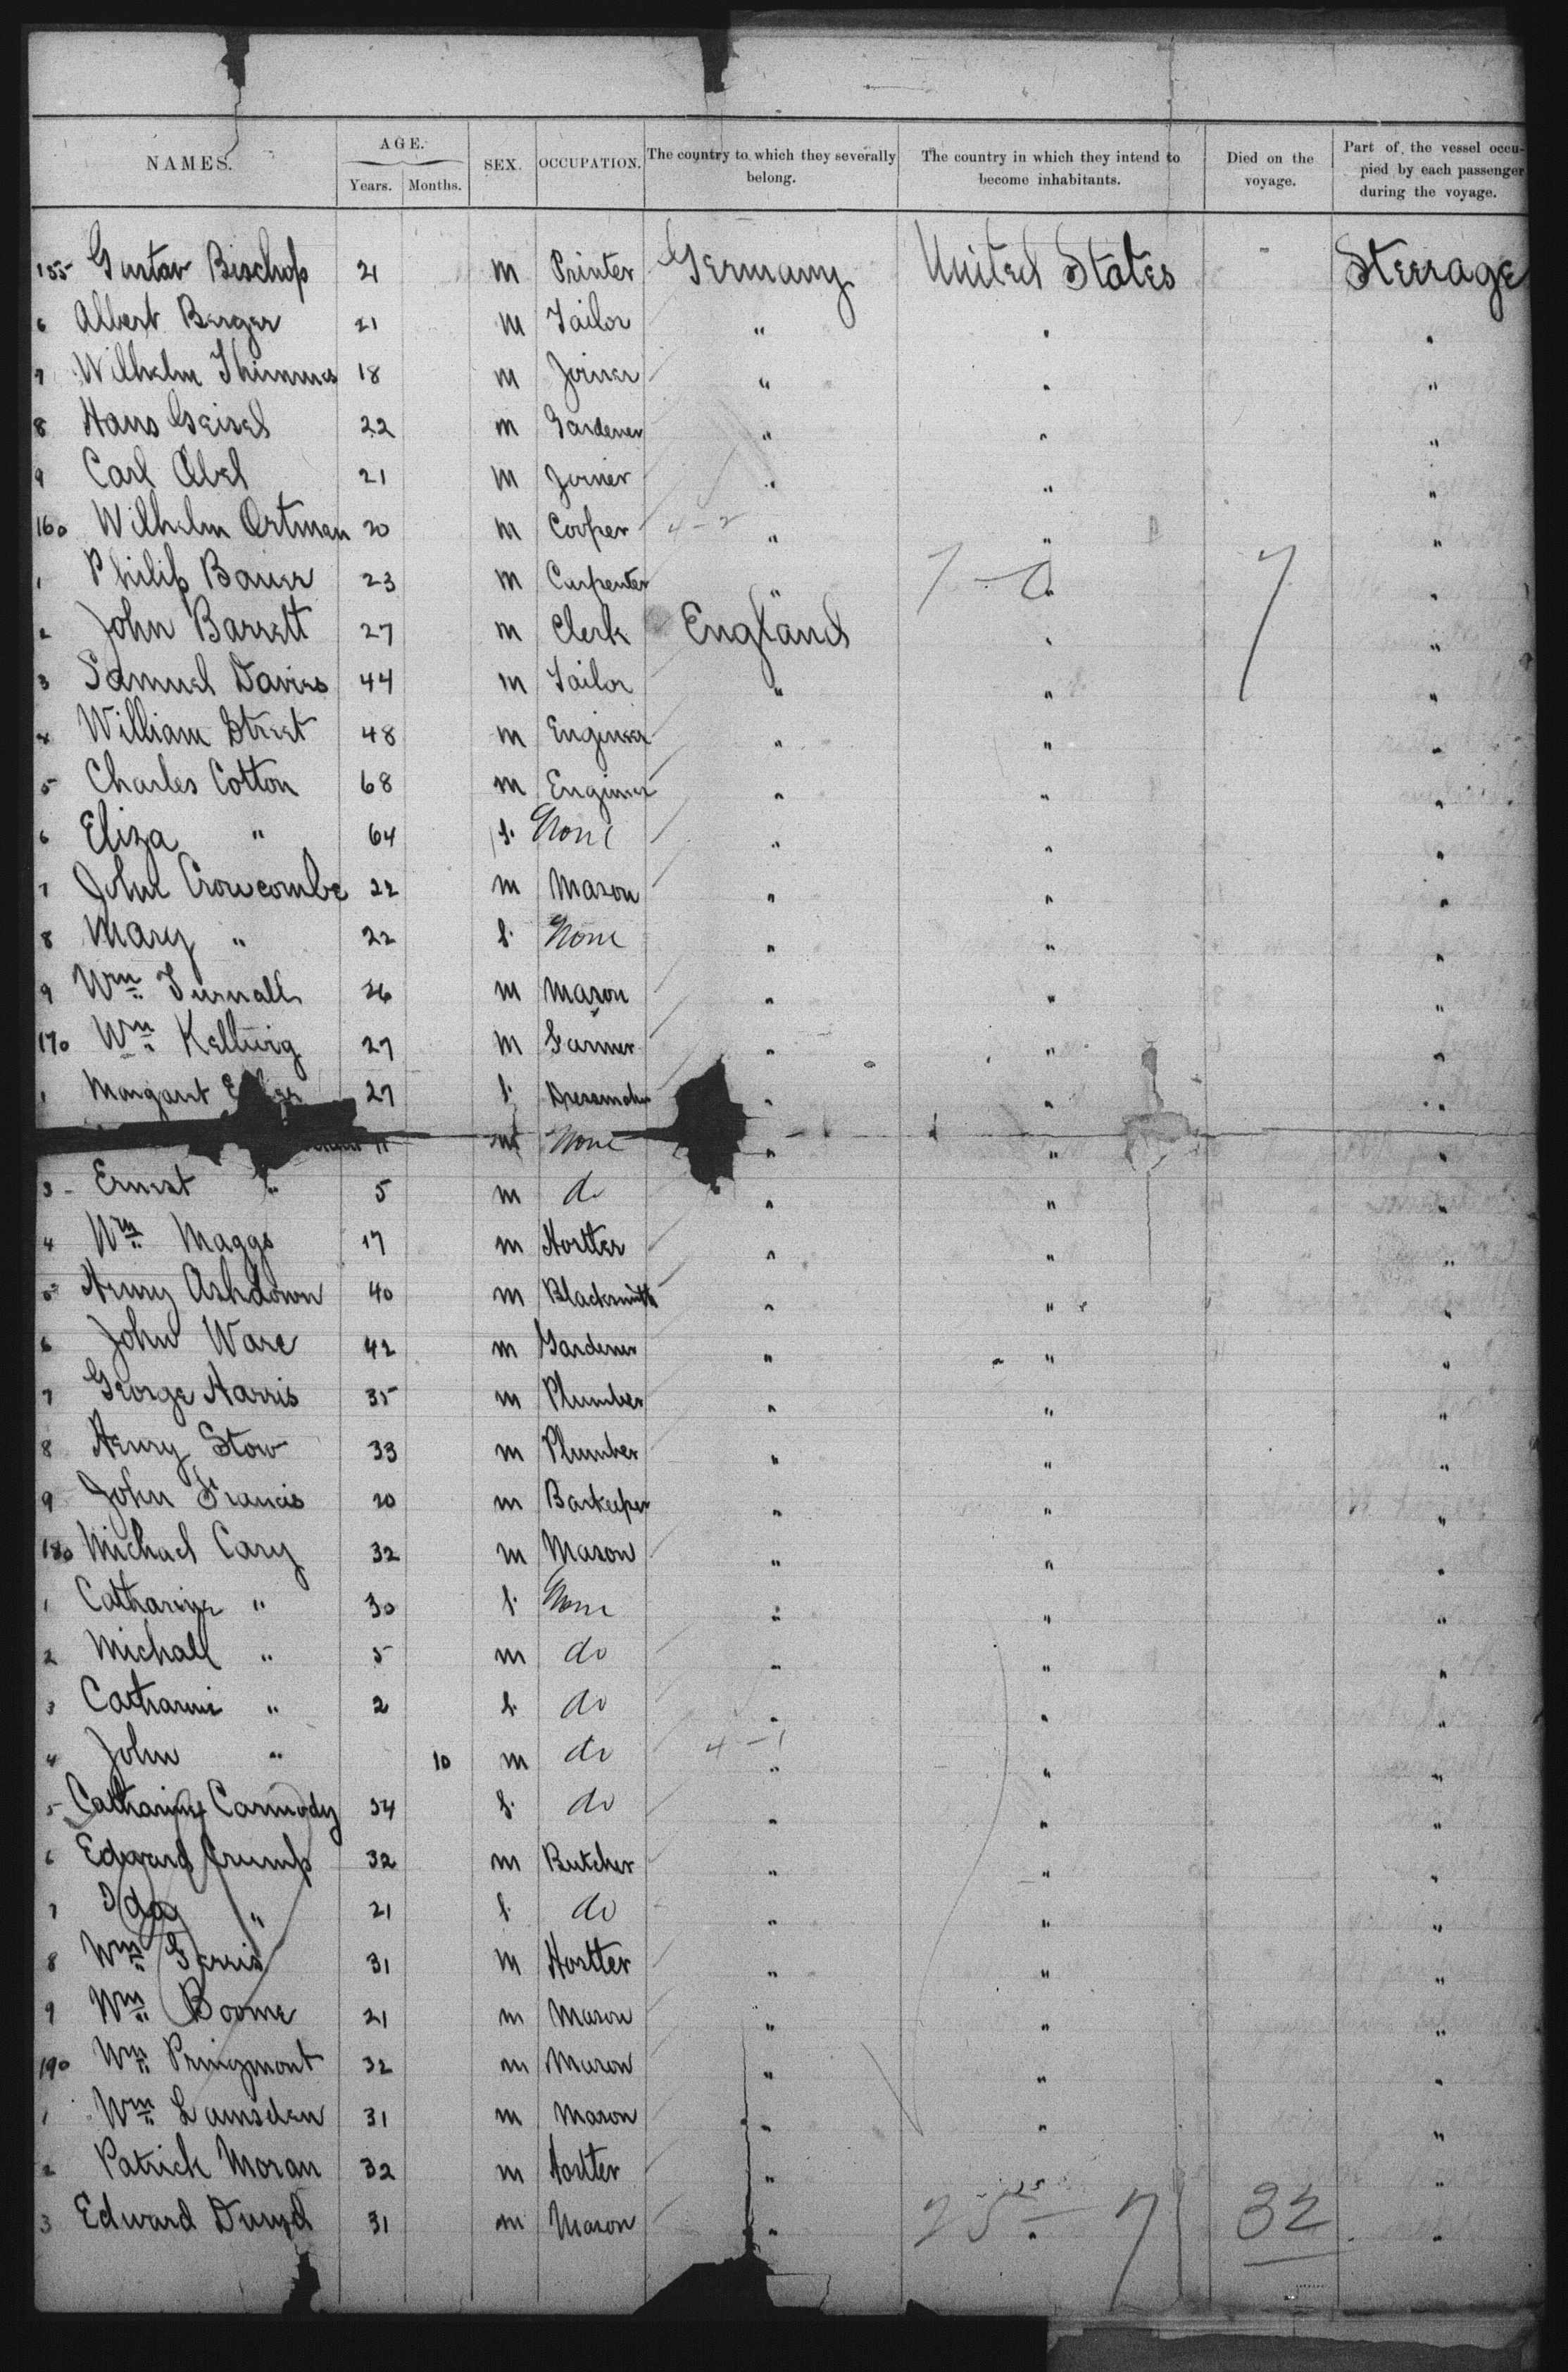 NAMES. AGE. Years. Months. SEX. OCCUPATION. The country to which they severally belong. The country in which they intend to become inhabitants. Died on the voyage. Part of the vessel occupied by each passenger during the voyage.
155 Gustav Bischop 21 m Printer Germany United States " Steerage
6 Albert Berger 21 m Tailor " " "
7 Wilhelm Thimmes 18 m Joiner " " "
8 Hans Geisel 22 m Gardener " " "
9 Carl Abel 21 m Joiner " " "
160 Wilhelm Ortman 20 m Cooper 4-2 " " "
1 Philip Bauer 23 m Carpenter " 7-0 " 7 "
2 John Barrett 27 m Clerk England " "
3 Samuel Davies 44 m Tailor " " "
4 William Street 48 m Engineer " " "
5 Charles Cotton 68 m Engineer " " "
6 Eliza " 64 f. None " " "
7 John Crowcombe 22 m Mason " " "
8 Mary " 22 f. None " " "
9 Wm Turnall 26 m Mason " " "
170 Wm Kellwig 27 m Farmer " " "
1 Margaret 27 f. Dressmaker " " "
11 m None " " "
3 Ernest " 5 m do " " "
4 Wm Maggs 17 m Hostler " " "
5 Henry Ashdown 40 m Blacksmith " " "
6 John Ware 42 m Gardener " " "
7 George Harris 35 m Plumber " " "
8 Henry Stow 33 m Plumber " " "
9 John Francis 20 m Barkeeper " " "
180 Michael Cary 32 m Mason " " "
1 Catharine " 30 f. None " " "
2 Michall " 5 m do " " "
3 Catharine " 2 f. do " " "
4 John " 10 m do 4-1 " " "
5 Catharine Carmody 34 f. do " " "
6 Edward Crump 32 m Butcher " " "
7 Ida " 21 f. do " " "
8 Wm Gerris 31 m Hostler " " "
9 Wm Boome 21 m Mason " " "
190 Wm Pringmont 32 m Mason " " "
1 Wm Lamsden 31 m Mason " " "
2 Patrick Moran 32 m Hostler " " "
3 Edward 31 m Mason " 25 - 7 " 32 "